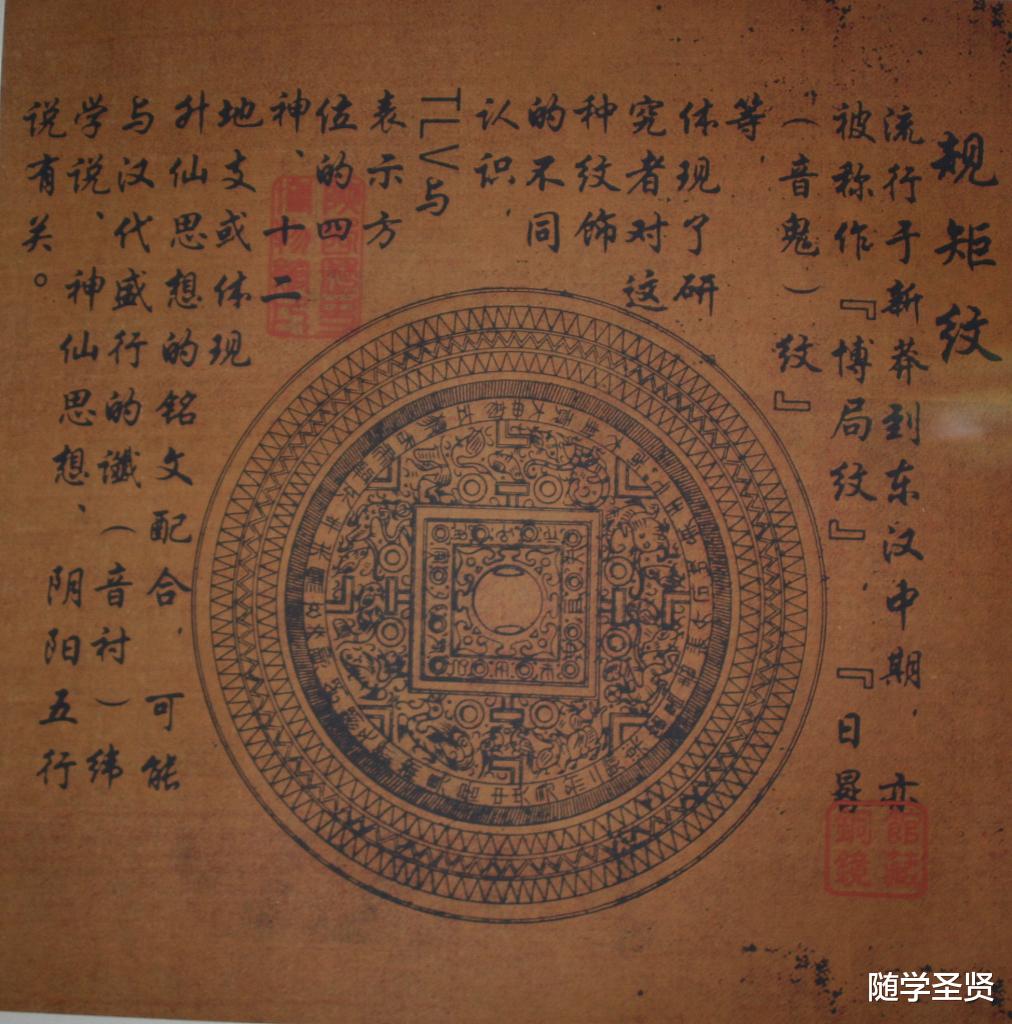 规矩纹
流行于新莽到东汉中期，亦
被称作『博局纹』，『日晷
（音鬼）纹』
等，
体现了研
究者对这
种纹饰
的不同
认识，
TLV与
表示方
位的四
神、十二
地支或体现
升仙思想的铭文配合，可能
与汉代盛行的谶（音衬）纬
学说、神仙思想、阴阳五行
说有关。
館藏
銅鏡
随学圣贤